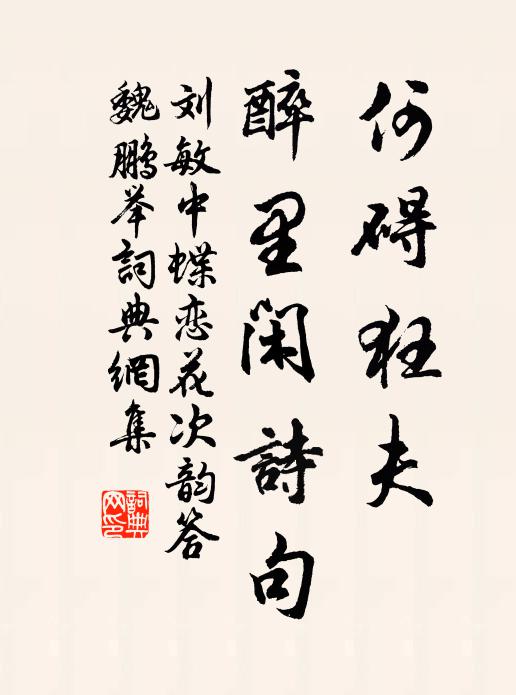 何碍狂夫
醉里闲詩句
刘敏中蝶恋花次韵答
魏鹏举詞典網集
詞典网印